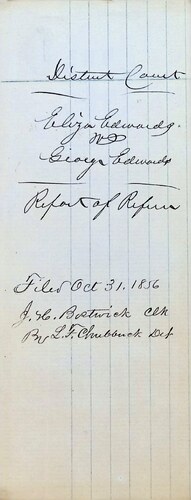 District Court
Eliza Edwards
vs
George Edwards
Report of Referee
Filed Oct 31. 1856
J. H. Bostwick Clk
By L. F. Chubbuck Det